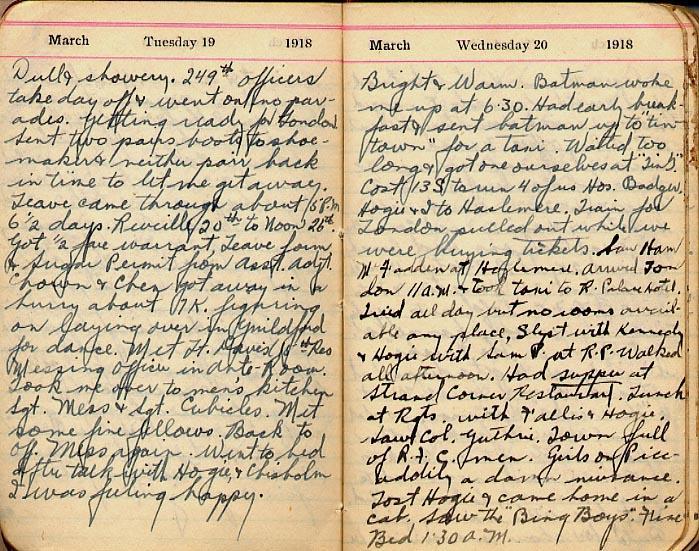 March Tuesday 19 1918
Dull & showery. 249th officers
take day off & went on no par-
ades. Getting ready for London
Sent two pairs boots to shoe-
maker & neither pair back
in time to let me get away.
Leave came through about 6 P.M.
6 1/2 days. Reveille 20th to Noon 26th.
Got 1/2 fare warrant, Leave form
& Sugar Permit from asst. adjt.
Chown & Chen got away in a
hurry about 7K. figuring
on laying over in Guildford
for dance. Met Lt. Davies 1st Res
Messing Officer in Ante-Room.
Took me over to men's kitchen
Sgt. Mess & Sgt. Cubicles. Met
some fine fellows. Back to
Off. Mess again. Went to bed
after talk with Hogie, & Chisholm
I was feeling happy.
March Wednesday 20 1918
Bright & Warm. Batman woke
me up at 6.30. Had early break-
fast & sent batman up to "tin
town" for a taxi. Waited too
long & got one ourselves at
Cost 13S to run 4 of us Hos. Badgw.
Hogie & I to Haslemere. Train for
London pulled out while we
were buying tickets. Saw Ham
McFadden at Haslemere, arrived Lon
don 11 A.M. & took taxi to R. Palace Hotel.
Tried all day but no rooms avail-
able any place, Slept with Kennedy
& Hogie with Sam P. at R.P. Walked
all afternoon. Had supper at
Strand Corner Restaurant. Lunch
at Rgts. with Fallis & Hogie.
Saw Col. Guthrie. Town full
of R.F.C. men. Girls on Picc-
addily a darn nuisance.
Lost Hogie & came home in a
cab. Saw the "Bing Boys". Fine
Bed 1.30 A.M.